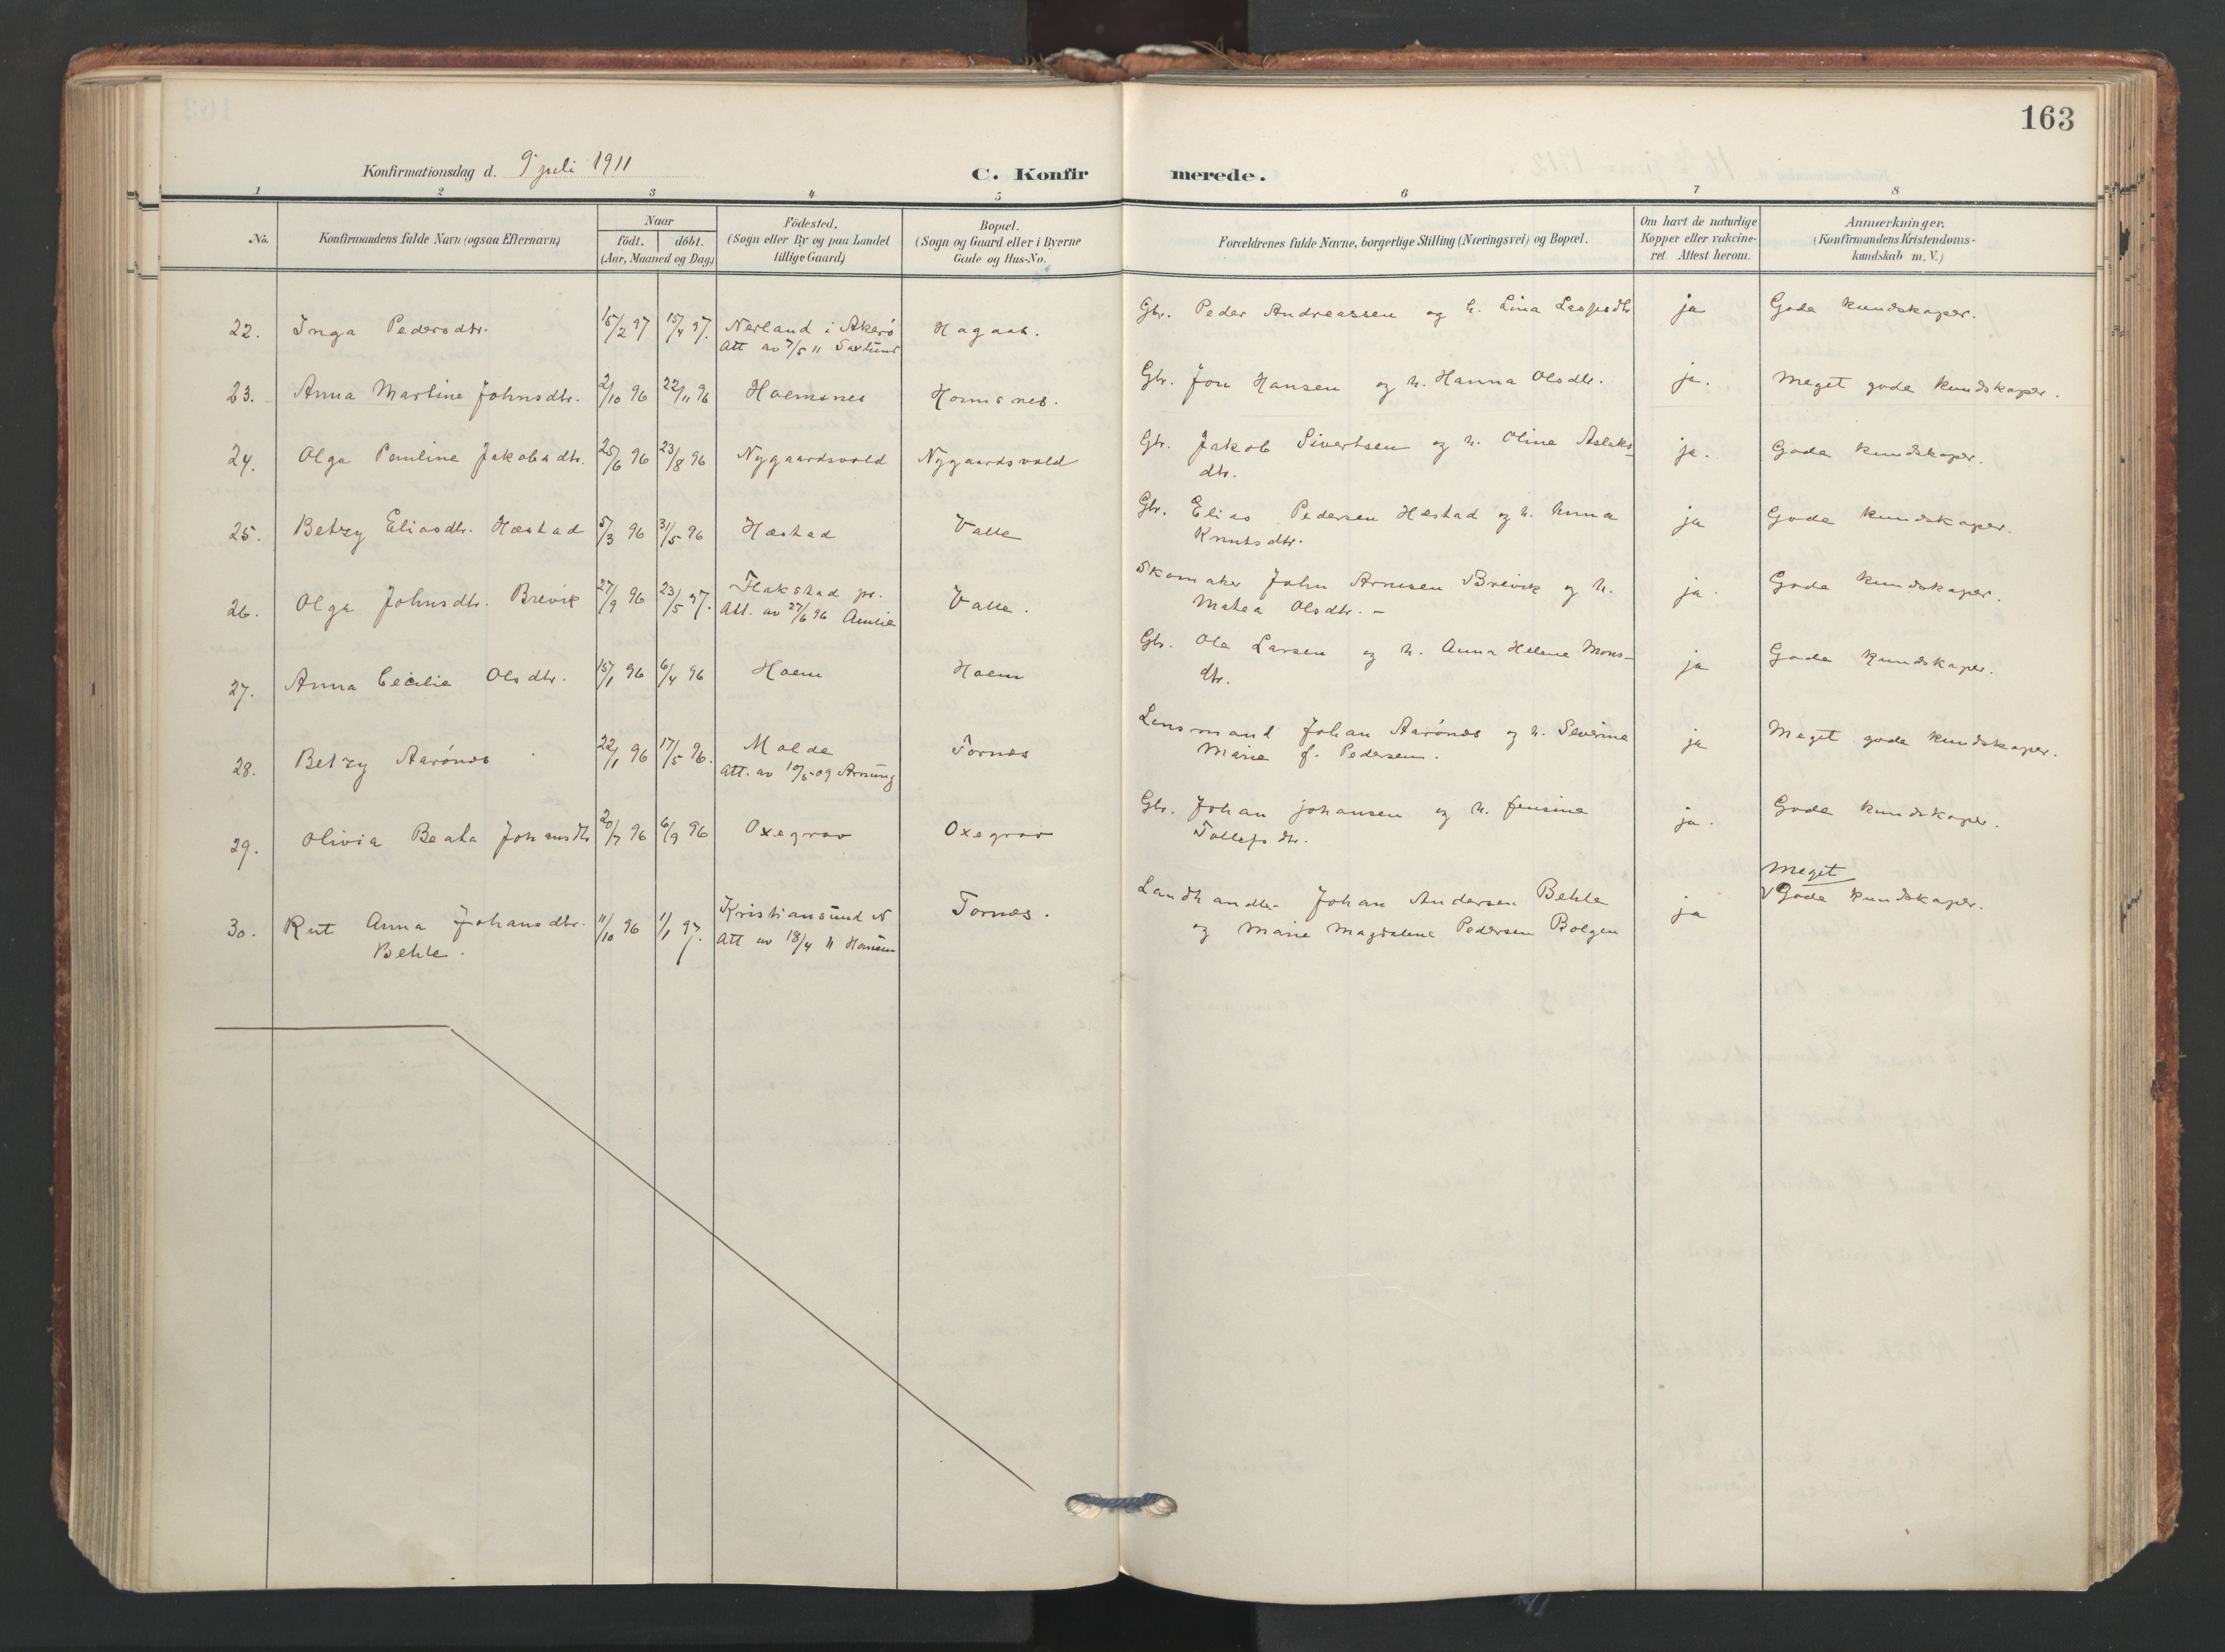 163
Konfirmationsdag d. 9 juli 1911
C. Konfirmerede.
1 2 3 4 5 6 7 8
No.
Konfirmandens fulde Navn (ogsaa Efternavn)
Naar
födt. döbt.
(Aar, Maaned og Dag)
Födested.
(Sogn eller By og paa Landet
tillige Gaard)
Bopæl.
(Sogn og Gaard eller i Byerne
Gade og Hus-No.
Forældrenes fulde Navne, borgerlige Stilling (Næringsvei) og Bopæl.
Om havt de naturlige
Kopper eller vakcine-
ret. Attest herom.
Anmærkninger.
(Konfirmandens Kristendoms-
kundskab m. V.)
22. Inga Pedersdtr. 15/2 97 15/4 97. Nerland i Akerö Hagaas. Gbr. Peder Andreassen og h. Lina ja Gode kundskaper.
Att av 7/5 11
23. Anna Martine Johnsdtr. 2/10 96 22/11 96 Hoemsnes Homsnes. Gbr. Jon Hansen og h. Hanna Olsdtr. ja. Meget gode kundskaper.
24. Olga Pauline Jakobsdtr. 25/6 96 23/8 96 Nygaardsvold Nygaardsvold Gbr. Jakob Sivertsen og h. Oline Aslaks-
dtr. ja. Gode kundskaper.
25. Betzy Eliasdtr. Hæstad 5/3 96 31/5 96 Hæstad Valle Gbr. Elias Pedersen Hæstad og h. Anna
Knutsdtr. ja Gode kundskaper.
26. Olga Johnsdtr. Brevik 27/9 96 23/5 97. Flakstad pr. Valle. Skomaker John Arnesen Brevik og h.
Att. av 27/6 96
Matea Olsdtr. - ja. Gode kundskaper.
27. Anna Cecilie Olsdtr. 15/1 96 6/4 96 Hoem Hoem Gbr. Ole Larsen og h. Anna Helene Mons-
dtr. ja Gode kundskaper.
28. Betzy Aarönæs 22/1 96 17/5 96. Molde Tornes Lensmand Johan Aarönæs og h. Severine
Att. av 10/5 09
Marie f. Pedersen. ja Meget gode kundskaper.
29. Olivia Beata Johansdtr 20/7 96 6/9 96 Oxegrav Oxegrav Gbr. Johan Johansen og h. Jensine
Tollefsdtr. ja. Gode kundskaper.
30. Rut Anna Johansdtr.
Behle. 11/10 96 1/1 97. Kristiansund N
Att av 18/4 11 Hansen Tornes. Landhandler Johan Andersen Behle
og Marie Magdalene Pedersen Bolgen ja Meget
Gode kundskaper.